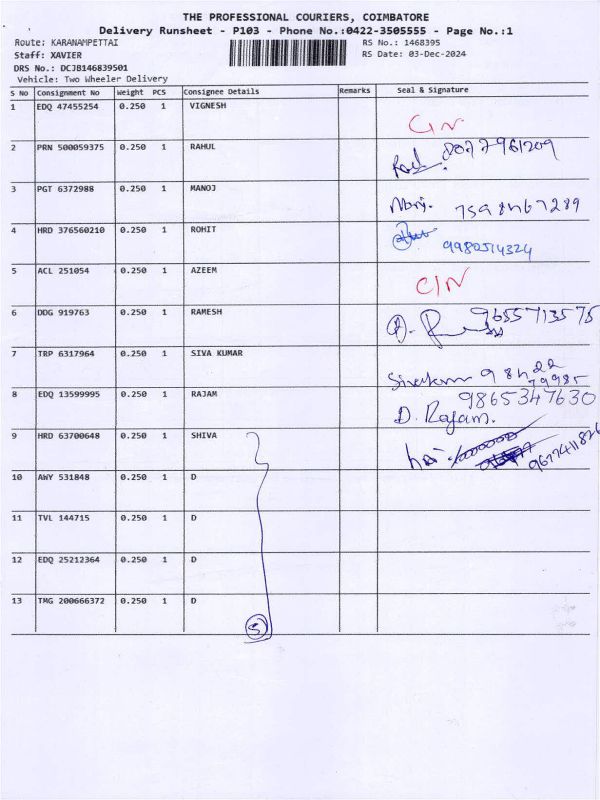 THE PROFESSIONAL COURIERS, COIMBATORE
Delivery Runsheet - P103 - Phone No.:0422-3505555 - Page No.:1
Route: KARANAMPETTAI RS No.: 1468395
Staff: XAVIER RS Date: 03-Dec-2024
DRS No.: DCJB146839501
Vehicle: Two Wheeler Delivery
S No Consignment No Weight PCS Consignee Details Remarks Seal & Signature
1 EDQ 47455254 0.250 1 VIGNESH
2 PRN 500059375 0.250 1 RAHUL
3 PGT 6372988 0.250 1 MANOJ
4 HRD 376560210 0.250 1 ROHIT
9980514324
5 ACL 251054 0.250 1 AZEEM
C/N
6 DDG 919763 0.250 1 RAMESH 9655713575
7 TRP 6317964 0.250 1 SIVA KUMAR
8 EDQ 13599995 0.250 1 RAJAM 9865347630
D. Rajam.
9 HRD 63700648 0.250 1 SHIVA
10 AWY 531848 0.250 1 D
11 TVL 144715 0.250 1 D
12 EDQ 25212364 0.250 1 D
13 TMG 200666372 0.250 1 D
5